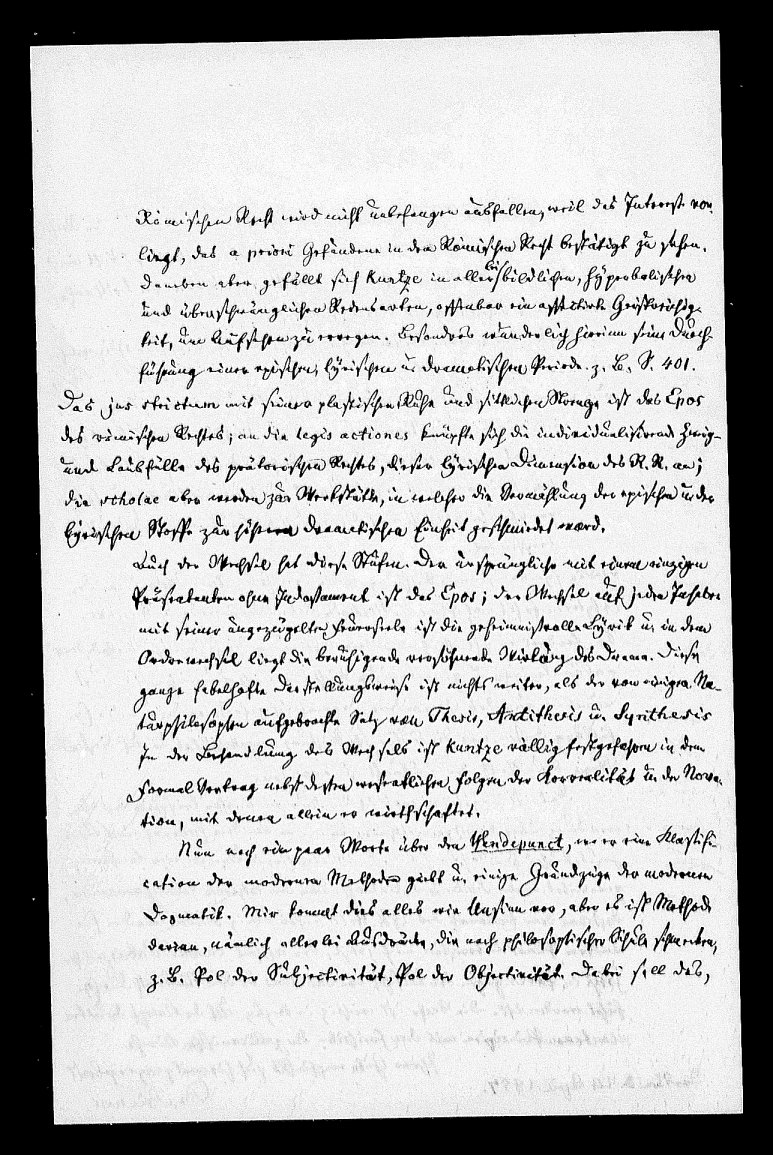 Römischen Recht wird nicht unbefangen ausfallen, weil das Interesse vor-
liegt, das a priori Gefundene in dem Römischen Recht bestätigt zu sehen.
Daneben aber gefällt sich Kuntze in allerlei bildlichen, hyperbolischen
und überschwänglichen Redensarten, offenbar ein affectirte Geistreichig-
keit, um Aufsehen zu erregen. Besonders wunderlich hierin seine Durch-
führung einer epischen, lyrischen u. dramatischen Periode. z. B. S. 401.
Das jus strictum mit seiner plastischen Ruhe und sittlichen Strenge ist das Epos
des römischen Rechtes; an die legis actiones knüpfte sich die individualisirende Zweig-
und Laubfülle des prätorischen Rechtes, dieser lyrischen Dimension des R. R. an;
die scholae aber werden zur Werkstätte, in welcher die Vermählung der epischen u. der
lyrischen Stoffe zur höheren dramatischen Einheit geschmiedet ward.
Auch der Wechsel hat diese Stufen. Der ursprüngliche mit einem einzigen
Präsentanten ohne Indossament ist das Epos; der Wechsel auf jeden Inhaber
mit seiner ungezügelten Feuerseele ist die geheimnißvolle Lyrik u. in dem
Ordrewechsel liegt die beruhigende versöhnende Wirkung des Drama. Diese
ganze fabelhafte Darstellungsweise ist nichts weiter, als der von einigen Na-
turphilosophen aufgebrachte Satz von Thesis, Antithesis u. Synthesis
In der Behandlung des Wechsels ist Kuntze völlig festgefahren in dem
Formal Vertrag nebst dessen wesentlichen Folgen der Correalität u. der Nova-
tion, mit denen allein er wirthschaftet.
Nun noch ein paar Worte über den Wendepunct, wo er eine Klassifi-
cation der modernen Methoden giebt u. einige Grundzüge der modernen
Dogmatik. Mir kommt dies alles wie Unsinn vor, aber es ist Methode
darian, nämlich allerlei Ausdrücke, die nach philosophischer Schule schmecken,
z. B. Pol der Subjectivität, Pol der Objectivität. Dabei soll das,